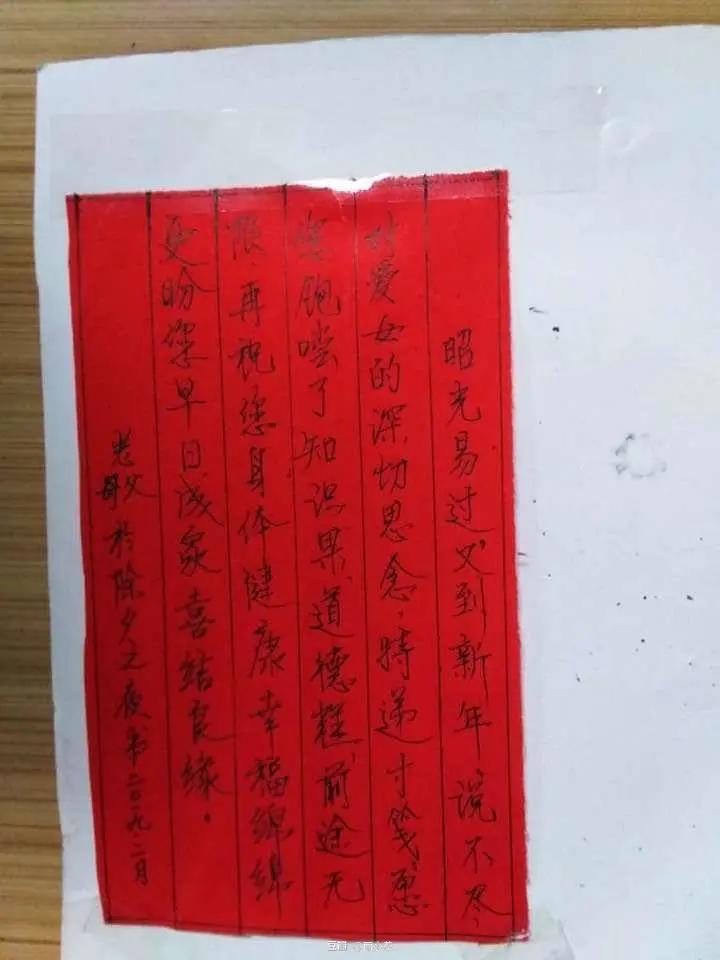 昭光易过又到新年,说不尽
对爱女的深切思念,特递寸笺,愿
您饱尝了知识果,道德糕,前途无
限,再祝您身体健康幸福绵绵
更盼您早日成家喜结良缘。
老父母於除夕之夜书二〇一九、二月